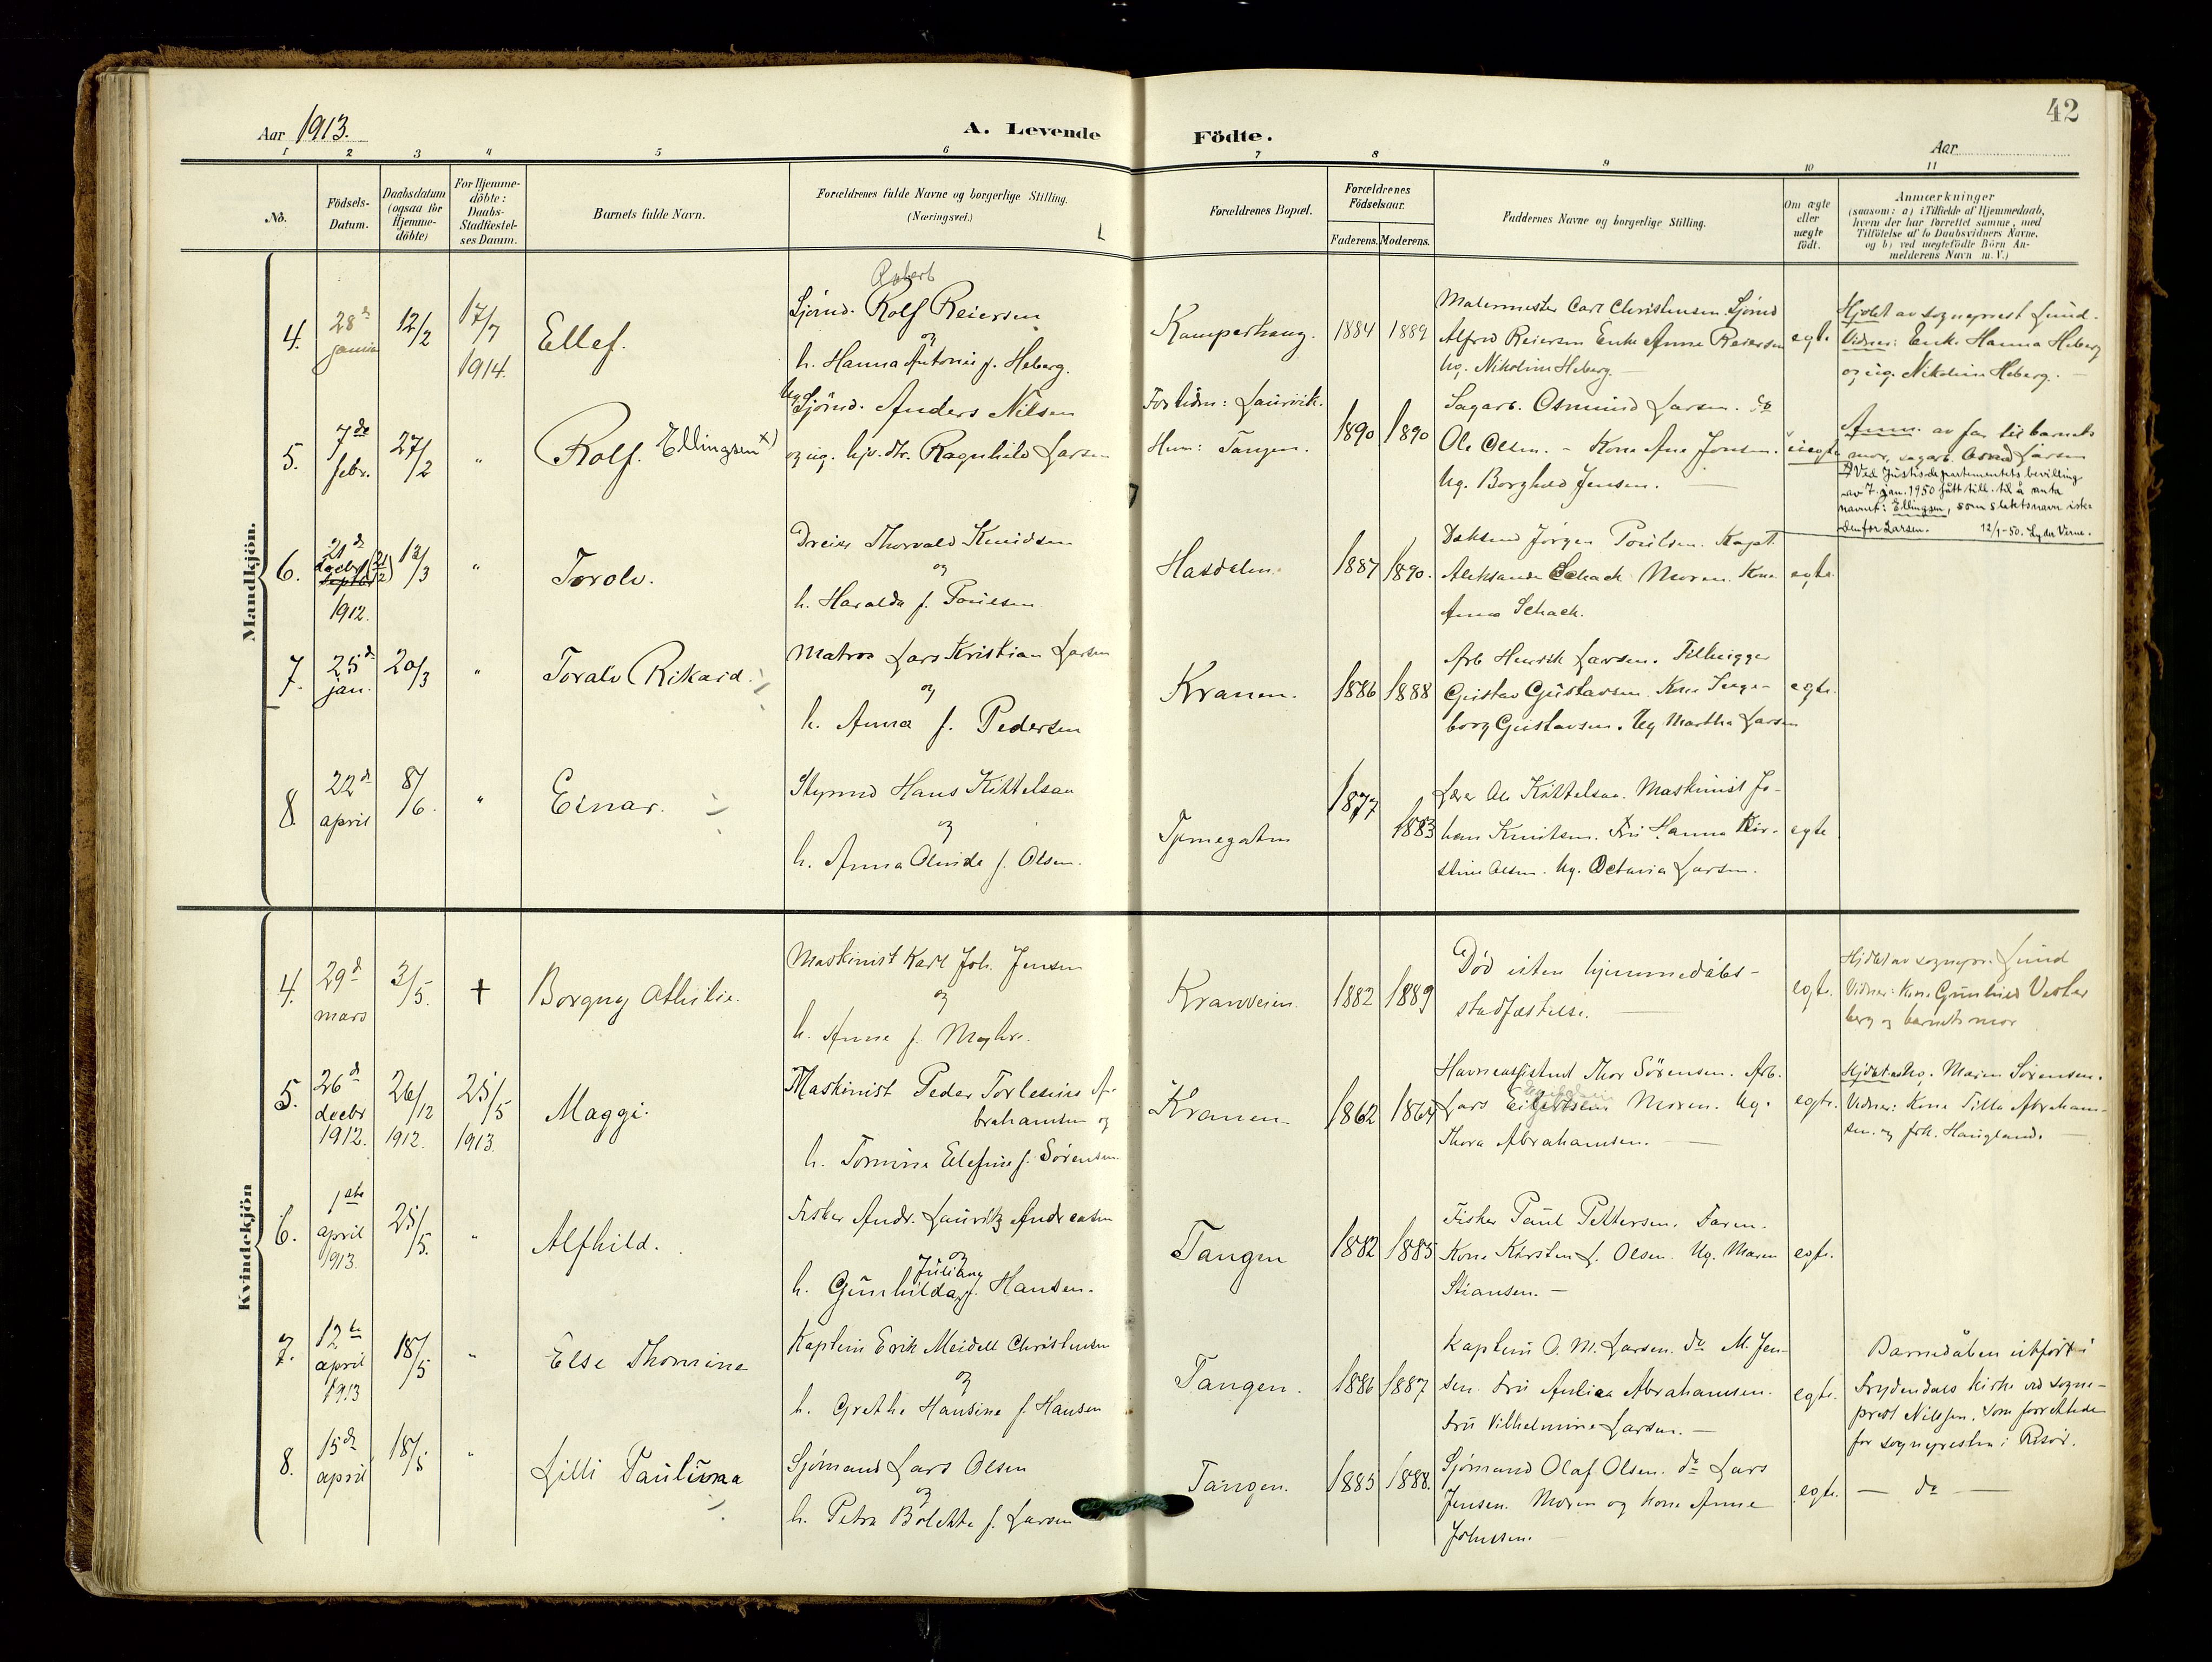 42
Aar 1913.
A. Levende Födte.
Aar
1 2 3 4 5 6 7 8 9 10 11
No.
Födsels-
Datum.
Daabsdatum
(ogsaa for
Hjemme-
döbte)
For Hjemme-
döbte:
Daabs-
Stadfæstel-
ses Datum.
Barnets fulde Navn.
Forældrenes fulde Navne og borgerlige Stilling.
(Næringsvei.)
Forældrenes Bopæl.
Forældrenes
Födselsaar.
Faderens. Moderens.
Faddernes Navne og borgerlige Stilling.
Om ægte
eller
uægte
födt.
Anmærkninger
(saasom: a) i Tilfælde af Hjemmedaab,
hvem der har forrettet samme, med
Tilföielse af to Daabsvidners Navne.
og b) ved uægtefödte Börn An-
melderens Navn m. V.)
Mandkjön.
4.
28d
januar
12/2
17/7
1914.
Ellef.
Robert
Sjömd. Rolf Reiersen
og
h. Hanna Antonie f. Heberg.
Kamperhaug.
1884
1889
Malermester Carl Christensen. Sjömd
Alfred Reiersen Enke Anne Reiersen
Ug. Nikoline Heberg. —
egte
Hjdbt av sogneprest Lund.
Vidner: Enk. Hanna Heberg
og ug. Nikoline Heberg. —
5.
7de
febr.
27/2
"
Rolf. Ellingsen x)
Ug Sjömd. Anders Nilsen
og ug. hjv. dtr. Ragnhild Larsen
Laurvik.
Hun: Tangen.
1890
1890
Sagarb. Osmund Larsen. do
Ole Olsen. - Kone Ane Jensen.
Ug. Borghild Jensen. —
uegte
Anm. av far til barnets
mor, sagarb. Larsen
x) Ved Justisdepartementets bevilling
av 7. jan. 1950 fått till. til å anta
navnet: Ellingsen, som slektsnavn iste-
denfor Larsen. 12/1-50. Lyder Verne.
6.
21d
decbr (21/12)
septbr
1912.
13/3
"
Torolv.
Dreier Thorvald Knudsen
og
h. Haralda f. Poulsen
Hasdalen.
1887
1890.
Jörgen Poulsen. Kapt.
Aleksander Schach Moren. Kone
Anna Schach.
egte.
7.
25d
jan.
20/3
"
Toralv Rikard.
Matros Lars Kristian Larsen
og
h. Anna f. Pedersen
Kranen.
1886
1888
Arb Henrik Larsen. Tilhugger
Gustav Gustavsen. Kone Inge-
borg Gustavsen. Ug Martha Larsen
egte.
8.
22d
april
8/6.
"
Einar.
Styrmd Hans Kittelsen
og
h. Anna Olivide f. Olsen.
Tjennegaten
1877
1883
Lærer Ole Kittelsen. Maskinist Jo-
han Knutsen. Fru Hanna Kir-
stine Olsen. Ug. Octavia Larsen.
egte
Kvindekjön
4.
29d
mars
3/5.
+
Borgny Othilie.
Maskinist Karl Joh. Jensen
og
h. Anne f. Myhre.
Kranveien.
1882
1889
Död uten hjemmedåbs-
stadfæstelse. —
egte.
Hjdbt av sognepr. Lund
Vidner: Kone Gunhild Vester
berg og barnets mor
5.
26d
decbr
1912.
26/12
1912.
25/5
1913.
Maggi.
Maskinist Peder Torlesius A-
brahamsen og
h. Tomine Elefine f. Sörensen
Kranen.
1862
1864
Havneassistent Thor Sörensen. Arb.
Lars Moren. Ug.
Thora Abrahamsen. —
egte.
Hjdbt av Ug. Maren Sörensen.
Vidner: Kone Tilla Abraham-
sen og frk. Haugland. —
6.
1ste
april
1913.
25/5.
"
Alfhild.
Fisker Andr. Lauritz Andreasen
og
Juliane
h. Gunhilda f. Hansen.
Tangen
1882
1885
Fisker Paul Pettersen.
Kone Kirsten f. Olsen. Ug. Maren
Stiansen. —
egte.
7.
12te
april
1913
18/5
"
Else Thomine
Kaptein Erik Meidell Christensen
og
h. Grethe Hansine f. Hansen
Tangen.
1886
1887
Kaptein O. M. Larsen. do M. Jen-
sen. Fru Aulica Abrahamsen.
Fru Vilhelmine Larsen. —
egte.
Barnedåben utfört i
Frydendals kirke ved sogne-
prest Nilssen, som forrettede
for sognepresten i Risör.
8.
15de
april
18/5
"
Lilli Paulinna
Sjömand Lars Olsen
og
h. Petra Bolette f. Larsen
Tangen.
1885
1888.
Sjömand Olaf Olsen. do Lars
Jensen. Moren og Kone Anne
Johnsen. —
egte.
— do —